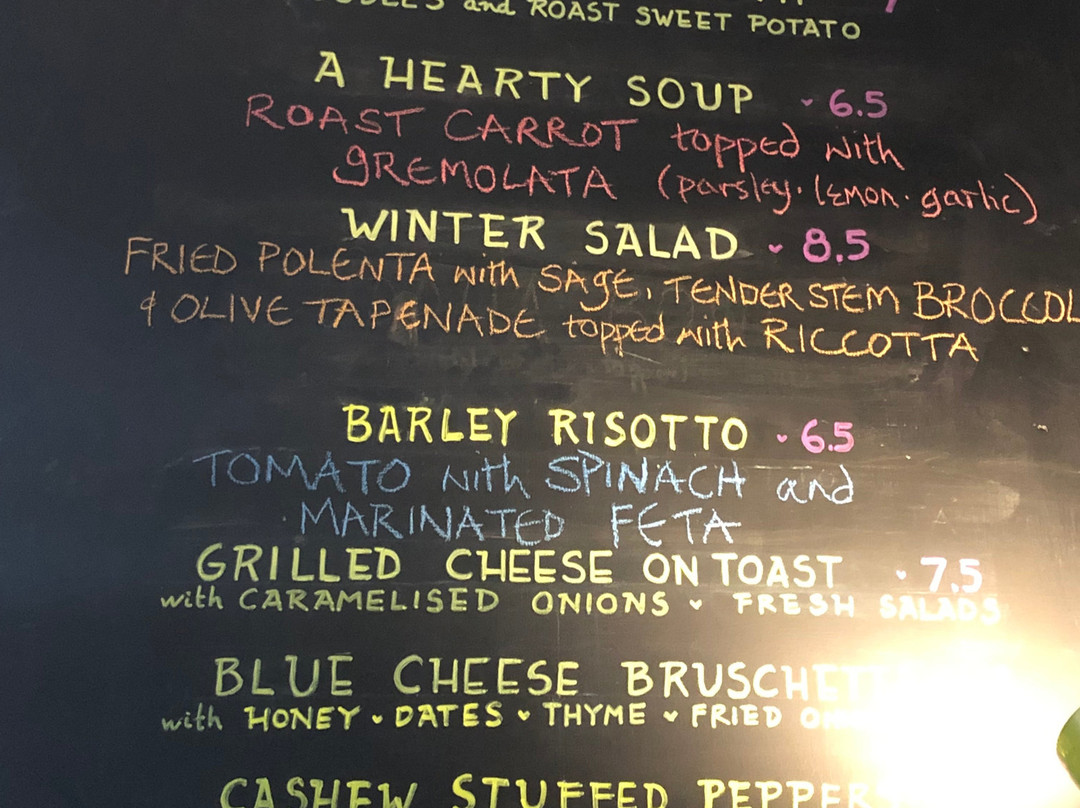 and ROAST SWEET POTATO
A HEARTY SOUP 6.5
ROAST CARROT topped with
gREMOLATA (parsley. lemon. garlic)
WINTER SALAD 8.5
FRIED POLENTA with SAgE, TENDERSTEM BROCCOL
& OLIVE TAPENADE topped with RICCOTTA
BARLEY RISOTTO 6.5
TOMATO with SPINACH and
MARINATED FETA
GRILLED CHEESE ON TOAST 7.5
with CARAMELISED ONIONS FRESH SALADS
BLUE CHEESE BRUSCHETT
with HONEY DATES THYME FRIED
CASHEW STUFFED PEPPER